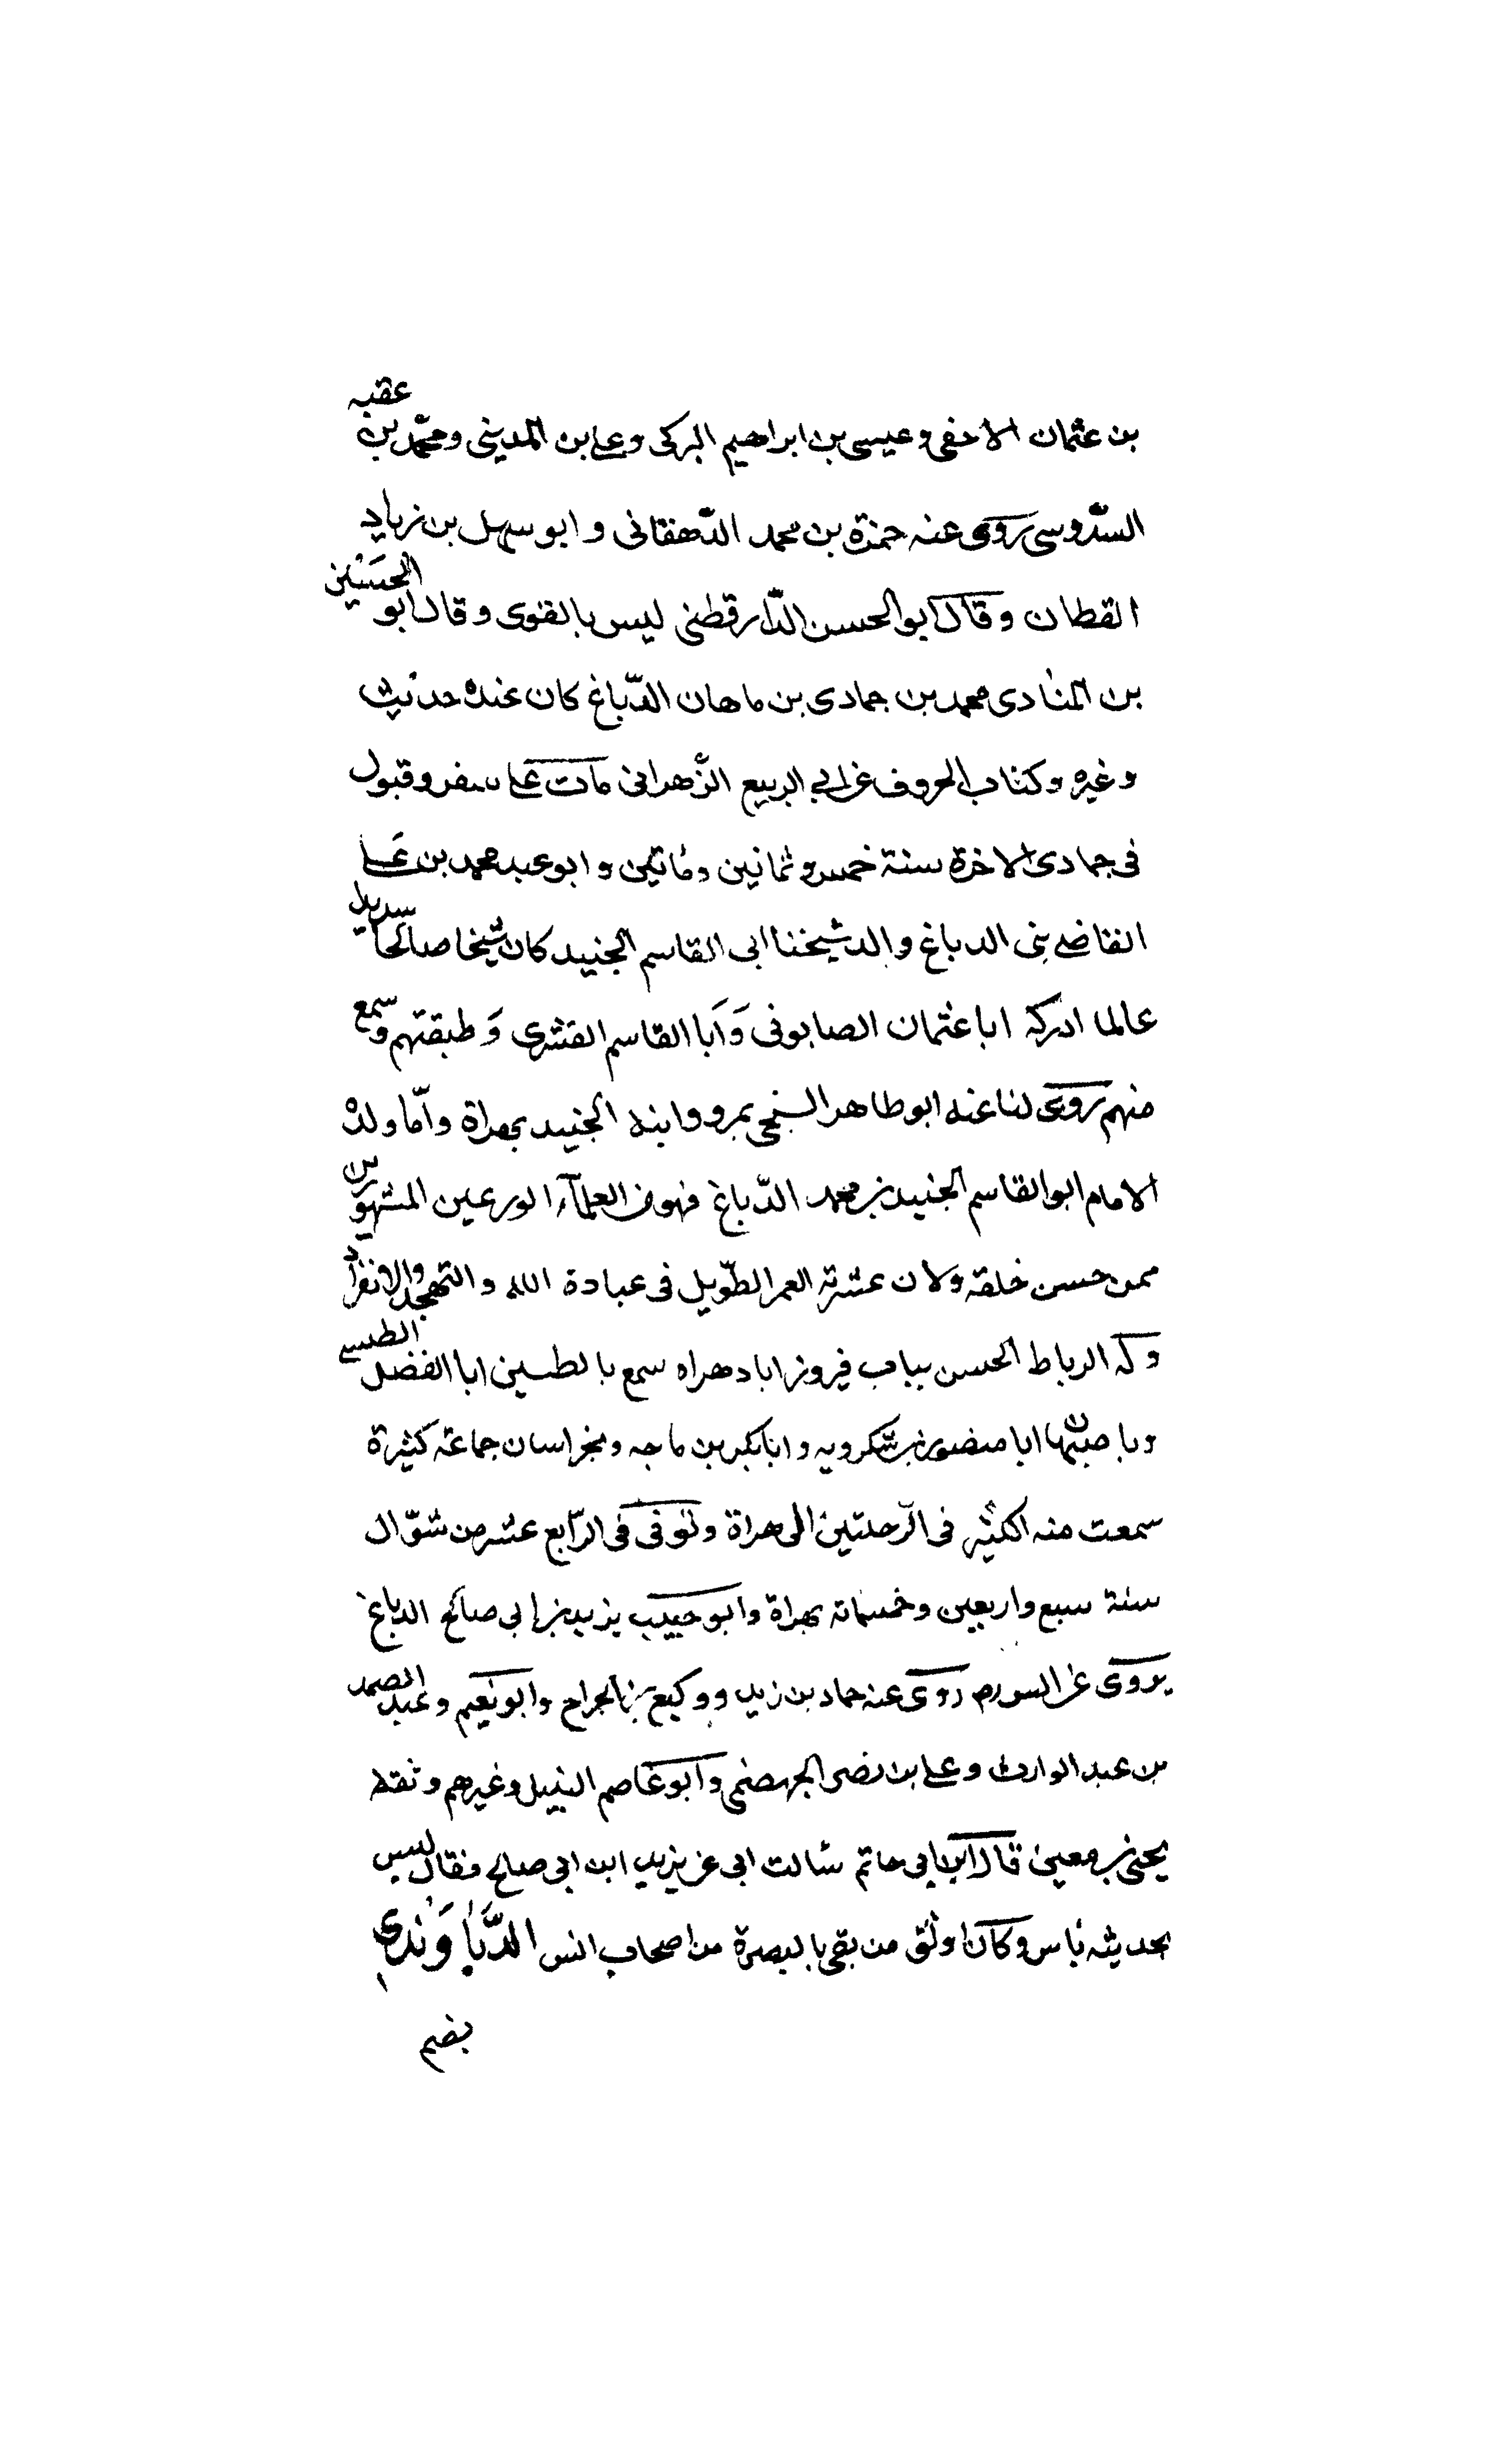 بن عثمان الاحفى وعيسى بن ابراهيم البركى وعلى بن المدينى ومحمّد بن عقبه
السّدوسى روى عنه حمزة بن محمد الدّهقانى وابو سهل بن زياد
القطان وقال ابو الحسن الدّارقطنى ليس بالقوى وقال ابو الحسَين
بن المنادى محمد بن حمادى بن ماهان الدّباغ كان عنده حديث
وغيره وكتاب الحروف عن ابى الربيع الزّهرانى مات على ستر وقبول
فى جمادى الاخرة سنة خمس وثمانين ومأتين وابو عبد محمد بن عَلى
القاضى بنى الدباغ والد شيخنا ابى القاسم الجنيد كان شيخا صالحا سديدا
عالما ادرك ابا عثمان الصابونى وَاَبا القاسم القشرى وَطبقتهم وسمع
منهم روى لنا عنه ابو طاهر السنجى بمرو وابنه الجنيد بهراة وامّا ولده
الامام ابو القاسم الجنيد بن محمد الدّباغ فهو من العلمآء الورعين المشهورين
ممن حسن خلقه ولان عشرته العمر الطّويل فى عبادة الله والتهجد والانفراد
وله الرباط الحسن بباب فيروزاباد هراه سمع بالطبسين ابا الفضل الطبسى
وباصبهان ابا منصور بن شكرويه وابا بكر بن ماجه وبخراسان جماعة كثيرة
سمعت منه الكثير فى الرّحلتين الى هراة وتوفى فى الرّابع عشر من شوّال
سنة سبع واربعين وخمسماته بهراة وابو حبيب يزيد بن ابى صالح الدباغ
يروى عن السورى روى عنه حماد بن زيد ووكيع بن الجراح وابو نعيم وعبد الصمد
بن عبد الوارث وعلى بن نصر الجهضمى وابو عاصم النبيل وغيرهم وثقه
يحيى بن معين قال ابن ابى حاتم سالت ابى عن يزيد ابن ابى صالح فقال ليس
بحديثه باس وكان اوثق من بقى بالبصرة من اصحاب انس الدَّبَاوَنْدى
بضم